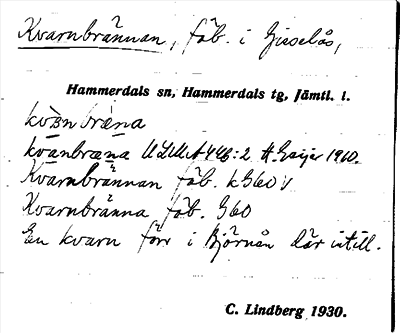 Kvarnbrännan, fäb. i Gisselås,
Hammerdals sn, Hammerdals tg, Jämtl. l.
kvänbræna ULMA 446:2 H. Geijer 1910.
Kvarnbrännan fäb. k G60 v
Kvarnbränna fäb. G60
En kvarn förr i Björnån där intill.
C. Lindberg 1930.